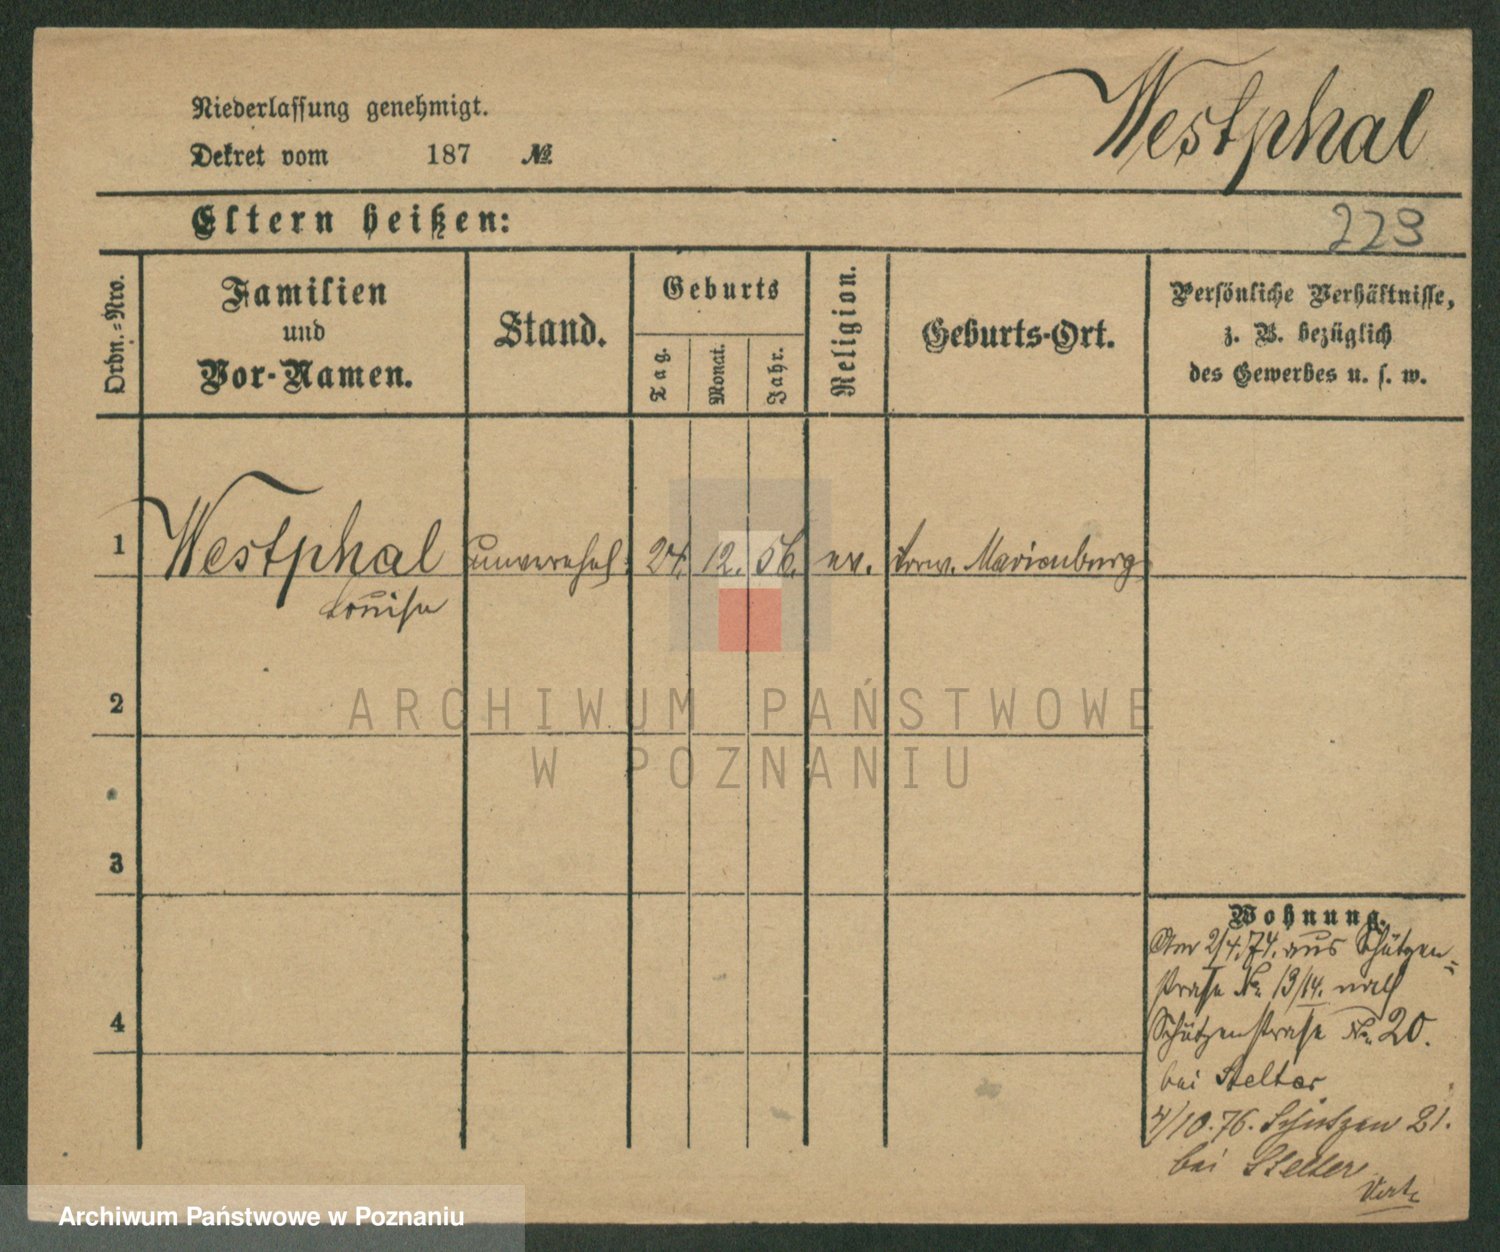 Westphal
Niederlassung genehmigt.
Dekret vom 187 №
Eltern heißen:
223
Ordn.-Nro.
Familien
und
Vor-Namen.
Stand.
Geburts
Tag.
Monat.
Jahr.
Religion.
Geburts-Ort.
Persönliche Verhältnisse,
z. B. bezüglich
des Gewerbes u. s. w.
1 Westphal unverehel. 24. 12. 56. ev. Marienburg
Louise
2
3
4
Wohnung.
Am 2/4.74. aus Schützen-
straße No. 13/14. nach
Schützenstraße No. 20.
bei Stelter
4/10.76. Schützen 21.
bei Stelter
ARCHIWUM PAŃSTWOWE
W POZNANIU
Archiwum Państwowe w Poznaniu